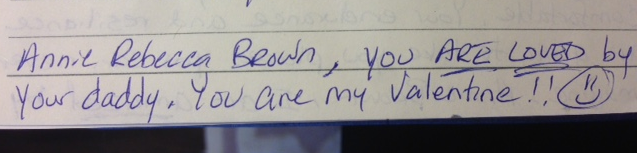 Annie Rebecca Brown, you ARE LOVED by
your daddy. You are my Valentine!!